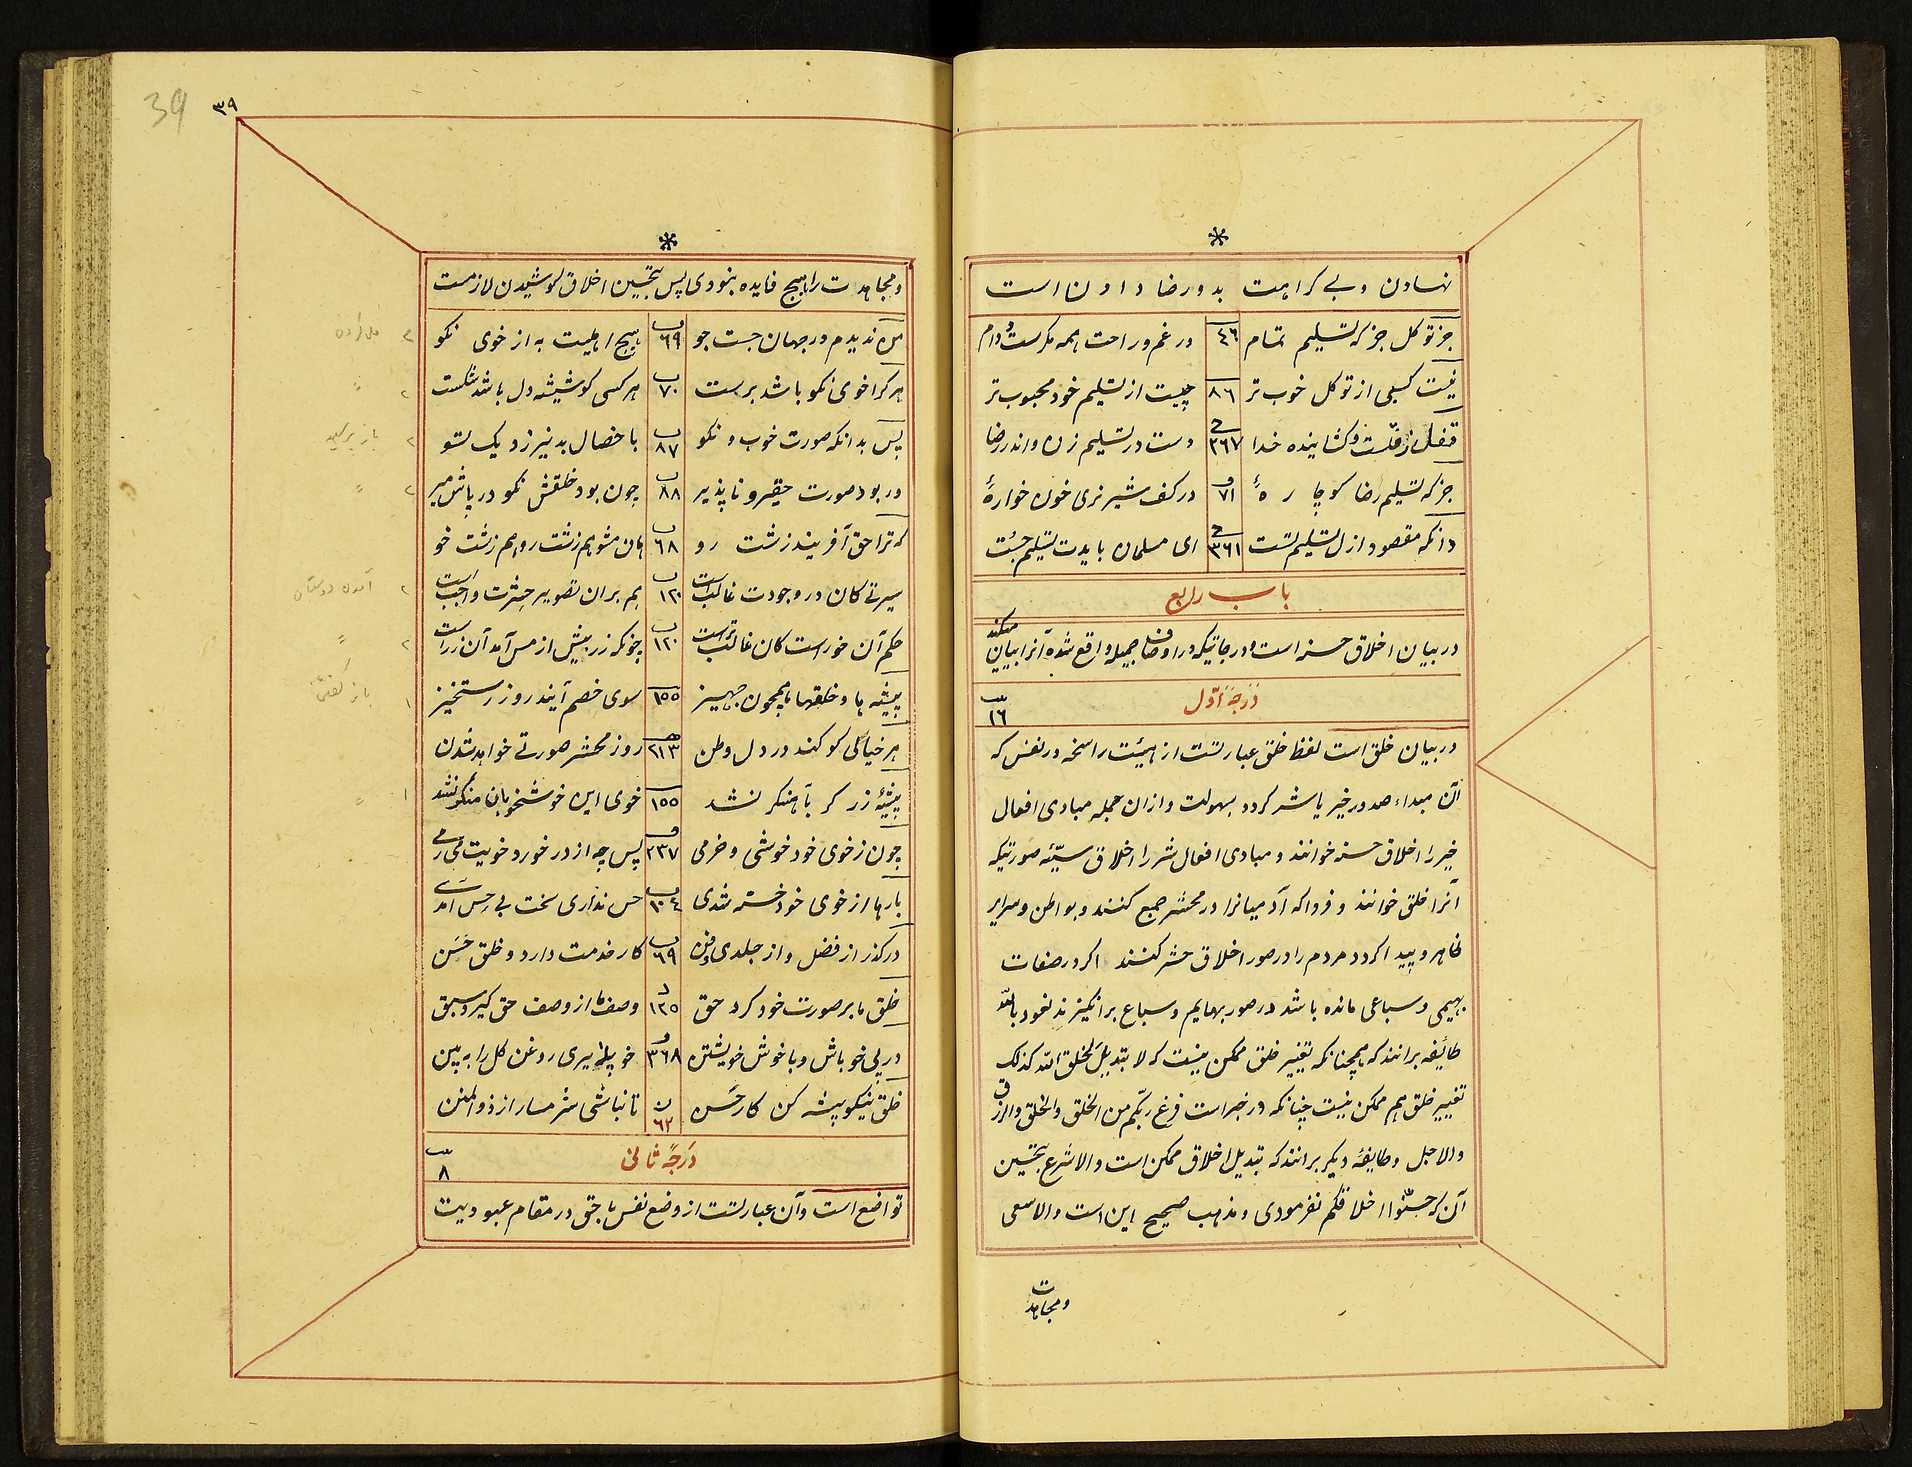 نهادن و بی کراهت بدو رضا دادن است
جز توکل جز که تسلیم تمام ٤٦ در غم و راحت همه مکرست و دام
نیست کسبی از توکل خوب تر ٨٦ چیست از تسلیم خود محبوب تر
قفل زفتست و کشاینده خدا ٣٦٧ دست در تسلیم زن و اندر رضا
جز که تسلیم رضا کو چارهٔ ٧١ در کف شیر نری خون خوارهٔ
دانکه مقصود ازل تسلیم تست ٣٦١ ای مسلمان بایدت تسلیم جست
باب رابع
در بیان اخلاق حسنه است و درجاتیکه در اوصاف جمیله واقع شده آنرا بیان میکند
درجهٔ اوّل
١٦
در بیان خلق است لفظ خلق عبارتست از هیئت راسخه در نفس که
آن مبداء صدور خیر یا شر کردد بسهولت و ازان جمله مبادی افعال
خیر را اخلاق حسنه خوانند و مبادی افعال شر را اخلاق سیّئه صورتیکه
آنرا خلق خوانند و فردا که آدمیانرا در محشر جمع کنند و بواطن و سرایر
ظاهر و پیدا کردد مردم را در صور اخلاق حشر کنند اکر در صفات
بهیمی و سباعی مانده باشد در صور بهایم و سباع برانکیزند نعوذ بالله
طائفه برانند که همچنانکه تغییر خلق ممکن نیست که لا تبدیل لخلق الله کذلک
تغییر خلق هم ممکن نیست چنانکه در خبر است فرغ ربّکم من الخلق والخلق والرزق
والاجل و طایفهٔ دیکر برانند که تبدیل اخلاق ممکن است والا شرع بتحسین
آن که حسّنوا اخلاقکم نفرمودی و مذهب صحیح این است والا سعی
و مجاهدت
٣٩
39
و مجاهدت را هیچ فایده نبودی پس بتحسین اخلاق کوشیدن لازمست
من ندیدم در جهان جست جو ٦٩ هیچ اهلیت به از خوی نکو
هر کرا خوی نکو باشد برست ٧٠ هر کسی کو شیشه دل باشد شکست
پس بدانکه صورت خوب و نکو ٨٧ با خصال بد نیرزد یک تسو
ور بود صورت حقیر و ناپذیر ٨٨ چون بود خلقش نکو در پاش میر
که ترا حق آفریند زشت رو ٦٨ هان مشو هم زشت رو هم زشت خو
سیرتی کان در وجودت غالبست ١٢٠ هم بران تصویر حشرت واجبست
حکم آن خوراست کان غالبترست ١٢٠ چونکه زر بیش از مس آمد آن زرست
پیشه ها و خلقها همچون جهیز ١٥٥ سوی خصم آیند روز رستخیز
هر خیالی کو کند در دل وطن ٢١٣ روز محشر صورتی خواهد شدن
پیشهٔ زرکر بآهنکر نشد ١٥٥ خوی این خوشخو بان منکر نشد
چون ز خوی خود خوشی و خرمی ٢٣٧ پس چه از درخورد خویت می رمی
بارها از خوی خود خسته شدی ١٠٤ حس نداری سخت بی حس آمدی
درکذر از فضل و از جلدی و فن ٦٩ کار خدمت دارد و خلق حسن
خلق ما بر صورت خود کرد حق ١٢٥ وصف ما از وصف حق کیرد سبق
در پی خو باش و با خوش خو نشین ٣٦٨ خو پذیری روغن کل را ببین
خلق نیکو پیشه کن کار حسن ٦٢ تا نباشی شرمسار از ذوالمنن
درجهٔ ثانی
٨
تواضع است و آن عبارتست از وضع نفس با حق در مقام عبودیت